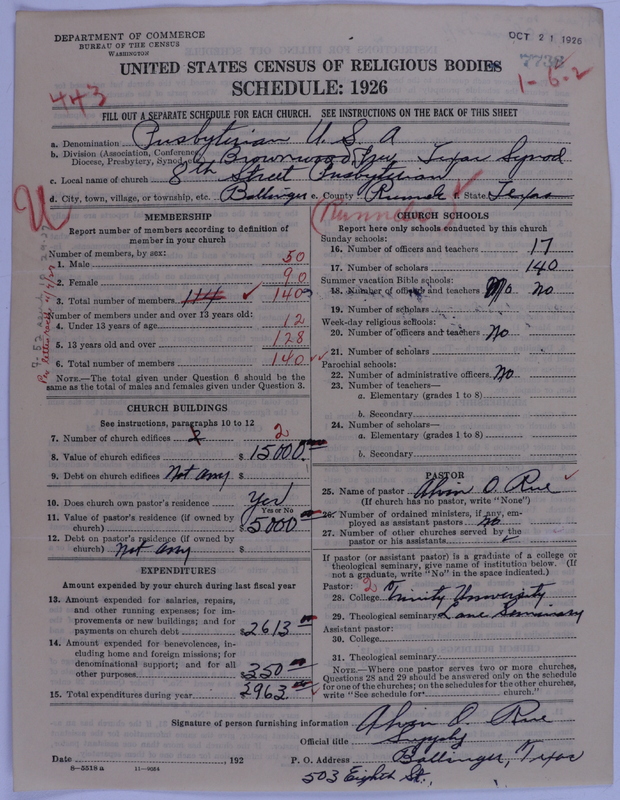 DEPARTMENT OF COMMERCE
BUREAU OF THE CENSUS
WASHINGTON
OCT 21 1926
7732
1-6-2
443
UNITED STATES CENSUS OF RELIGIOUS BODIES
SCHEDULE: 1926
FILL OUT A SEPARATE SCHEDULE FOR EACH CHURCH. SEE INSTRUCTIONS ON THE BACK OF THIS SHEET
a. Denomination Presbyterian U S A
b. Division (Association, Conference,
Diocese, Presbytery, Synod, etc. Brownwood Texas Synod
c. Local name of church 8th Street Presbyterian
d. City, town, village, or township, etc. Ballinger e. County Runnels f. State Texas
(Runnels)
U
MEMBERSHIP
Report number of members according to definition of
member in your church
Number of members, by sex:
1. Male 50
2. Female 90
3. Total number of members 114 140
Number of members under and over 13 years old:
4. Under 13 years of age 12
5. 13 years old and over 128
6. Total number of members 140
NOTE.—The total given under Question 6 should be the
same as the total of males and females given under Question 3.
CHURCH BUILDINGS
See instructions, paragraphs 10 to 12
7. Number of church edifices 2
8. Value of church edifices $ 15000
9. Debt on church edifices Not any $
10. Does church own pastor's residence Yes
Yes or No
11. Value of pastor's residence (if owned by
church) $ 5000
12. Debt on pastor's residence (if owned by
church) Not any $
EXPENDITURES
Amount expended by your church during last fiscal year
13. Amount expended for salaries, repairs,
and other running expenses; for im-
provements or new buildings; and for
payments on church debt $ 2613
14. Amount expended for benevolences, in-
cluding home and foreign missions; for
denominational support; and for all
other purposes $ 350
15. Total expenditures during year $ 2963
CHURCH SCHOOLS
Report here only schools conducted by this church
Sunday schools:
16. Number of officers and teachers 17
17. Number of scholars 140
Summer vacation Bible schools:
18. Number of officers and teachers No no
19. Number of scholars
Week-day religious schools:
20. Number of officers and teachers No
21. Number of scholars
Parochial schools:
22. Number of administrative officers No
23. Number of teachers—
a. Elementary (grades 1 to 8)
b. Secondary
24. Number of scholars—
a. Elementary (grades 1 to 8)
b. Secondary
PASTOR
25. Name of pastor Alvan O. Rue
(If church has no pastor, write "None")
26. Number of ordained ministers, if any, em-
ployed as assistant pastors no
27. Number of other churches served by the
pastor or his assistants
If pastor (or assistant pastor) is a graduate of a college or
theological seminary, give name of institution below. (If
not a graduate, write "No" in the space indicated.)
Pastor: 2
28. College Trinity University
29. Theological seminary Lane Seminary
Assistant pastor:
30. College
31. Theological seminary
NOTE.—Where one pastor serves two or more churches,
Questions 28 and 29 should be answered only on the schedule
for one of the churches; on the schedules for the other churches,
write "See schedule for church."
Signature of person furnishing information Alvan O. Rue
Official title Supply
Date , 192 P. O. Address Ballinger, Texas
8—5518 a 11—9024
503 Eighth St.